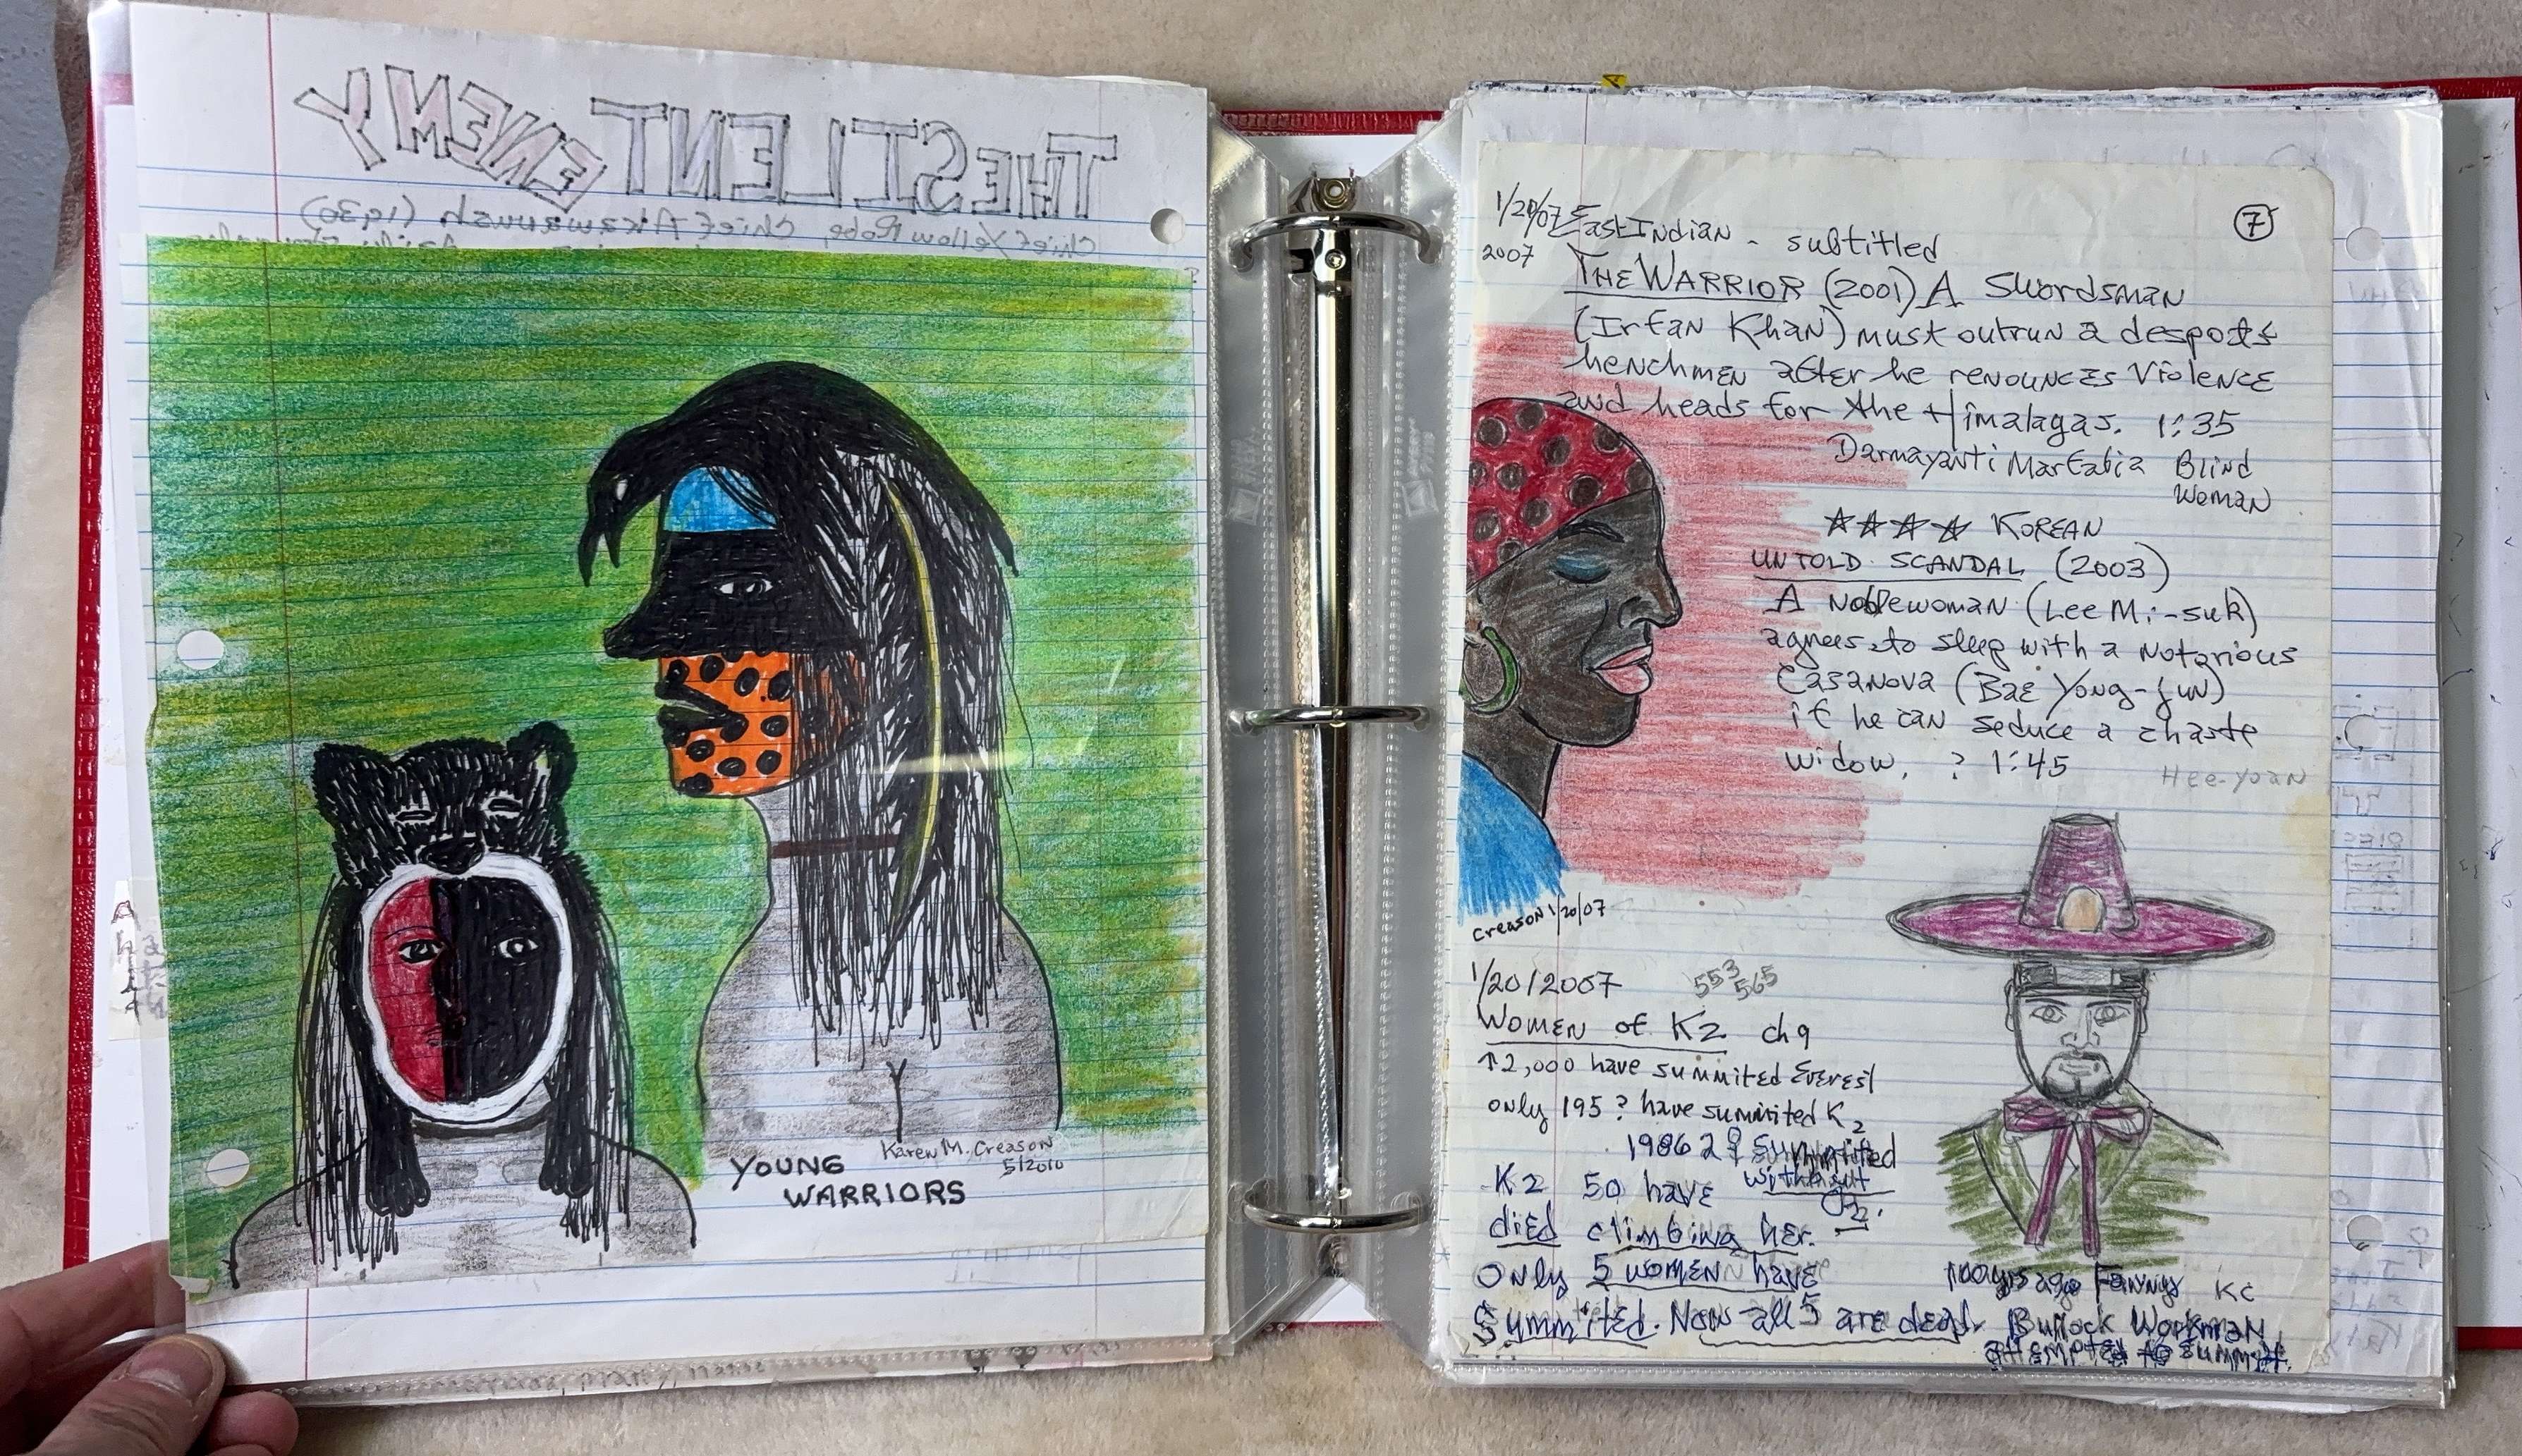 THE SILENT ENEMY
Chief Yellow Robe, Chief Akawanush (1930)
YOUNG
WARRIORS
Karen M. Creason
5/2010
7
1/20/07 East Indian - subtitled
2007
THE WARRIOR (2001) A Swordsman
(Irfan Khan) must outrun a despots
henchmen after he renounces Violence
and heads for the Himalagas. 1:35
Darmayanti Marfatia Blind
Woman
KOREAN
UNTOLD SCANDAL (2003)
A Noblewoman (Lee Mi-suk)
agrees to sleep with a Notorious
Casanova (Bae Yong-jun)
if he can seduce a chaste
widow. ? 1:45
Hee-Yoan
Creason 1/20/07
1/20/2007 553 565
Women of K2 ch 9
↑2,000 have summited Everest
only 195 ? have summited K2
1986 2 ♀ Summited
without
O2.
K2 50 have
died climbing her.
Only 5 women have
Summited. Now all 5 are dead.
100 yrs ago Fanny KC
Bullock Workman
attempted to summit.